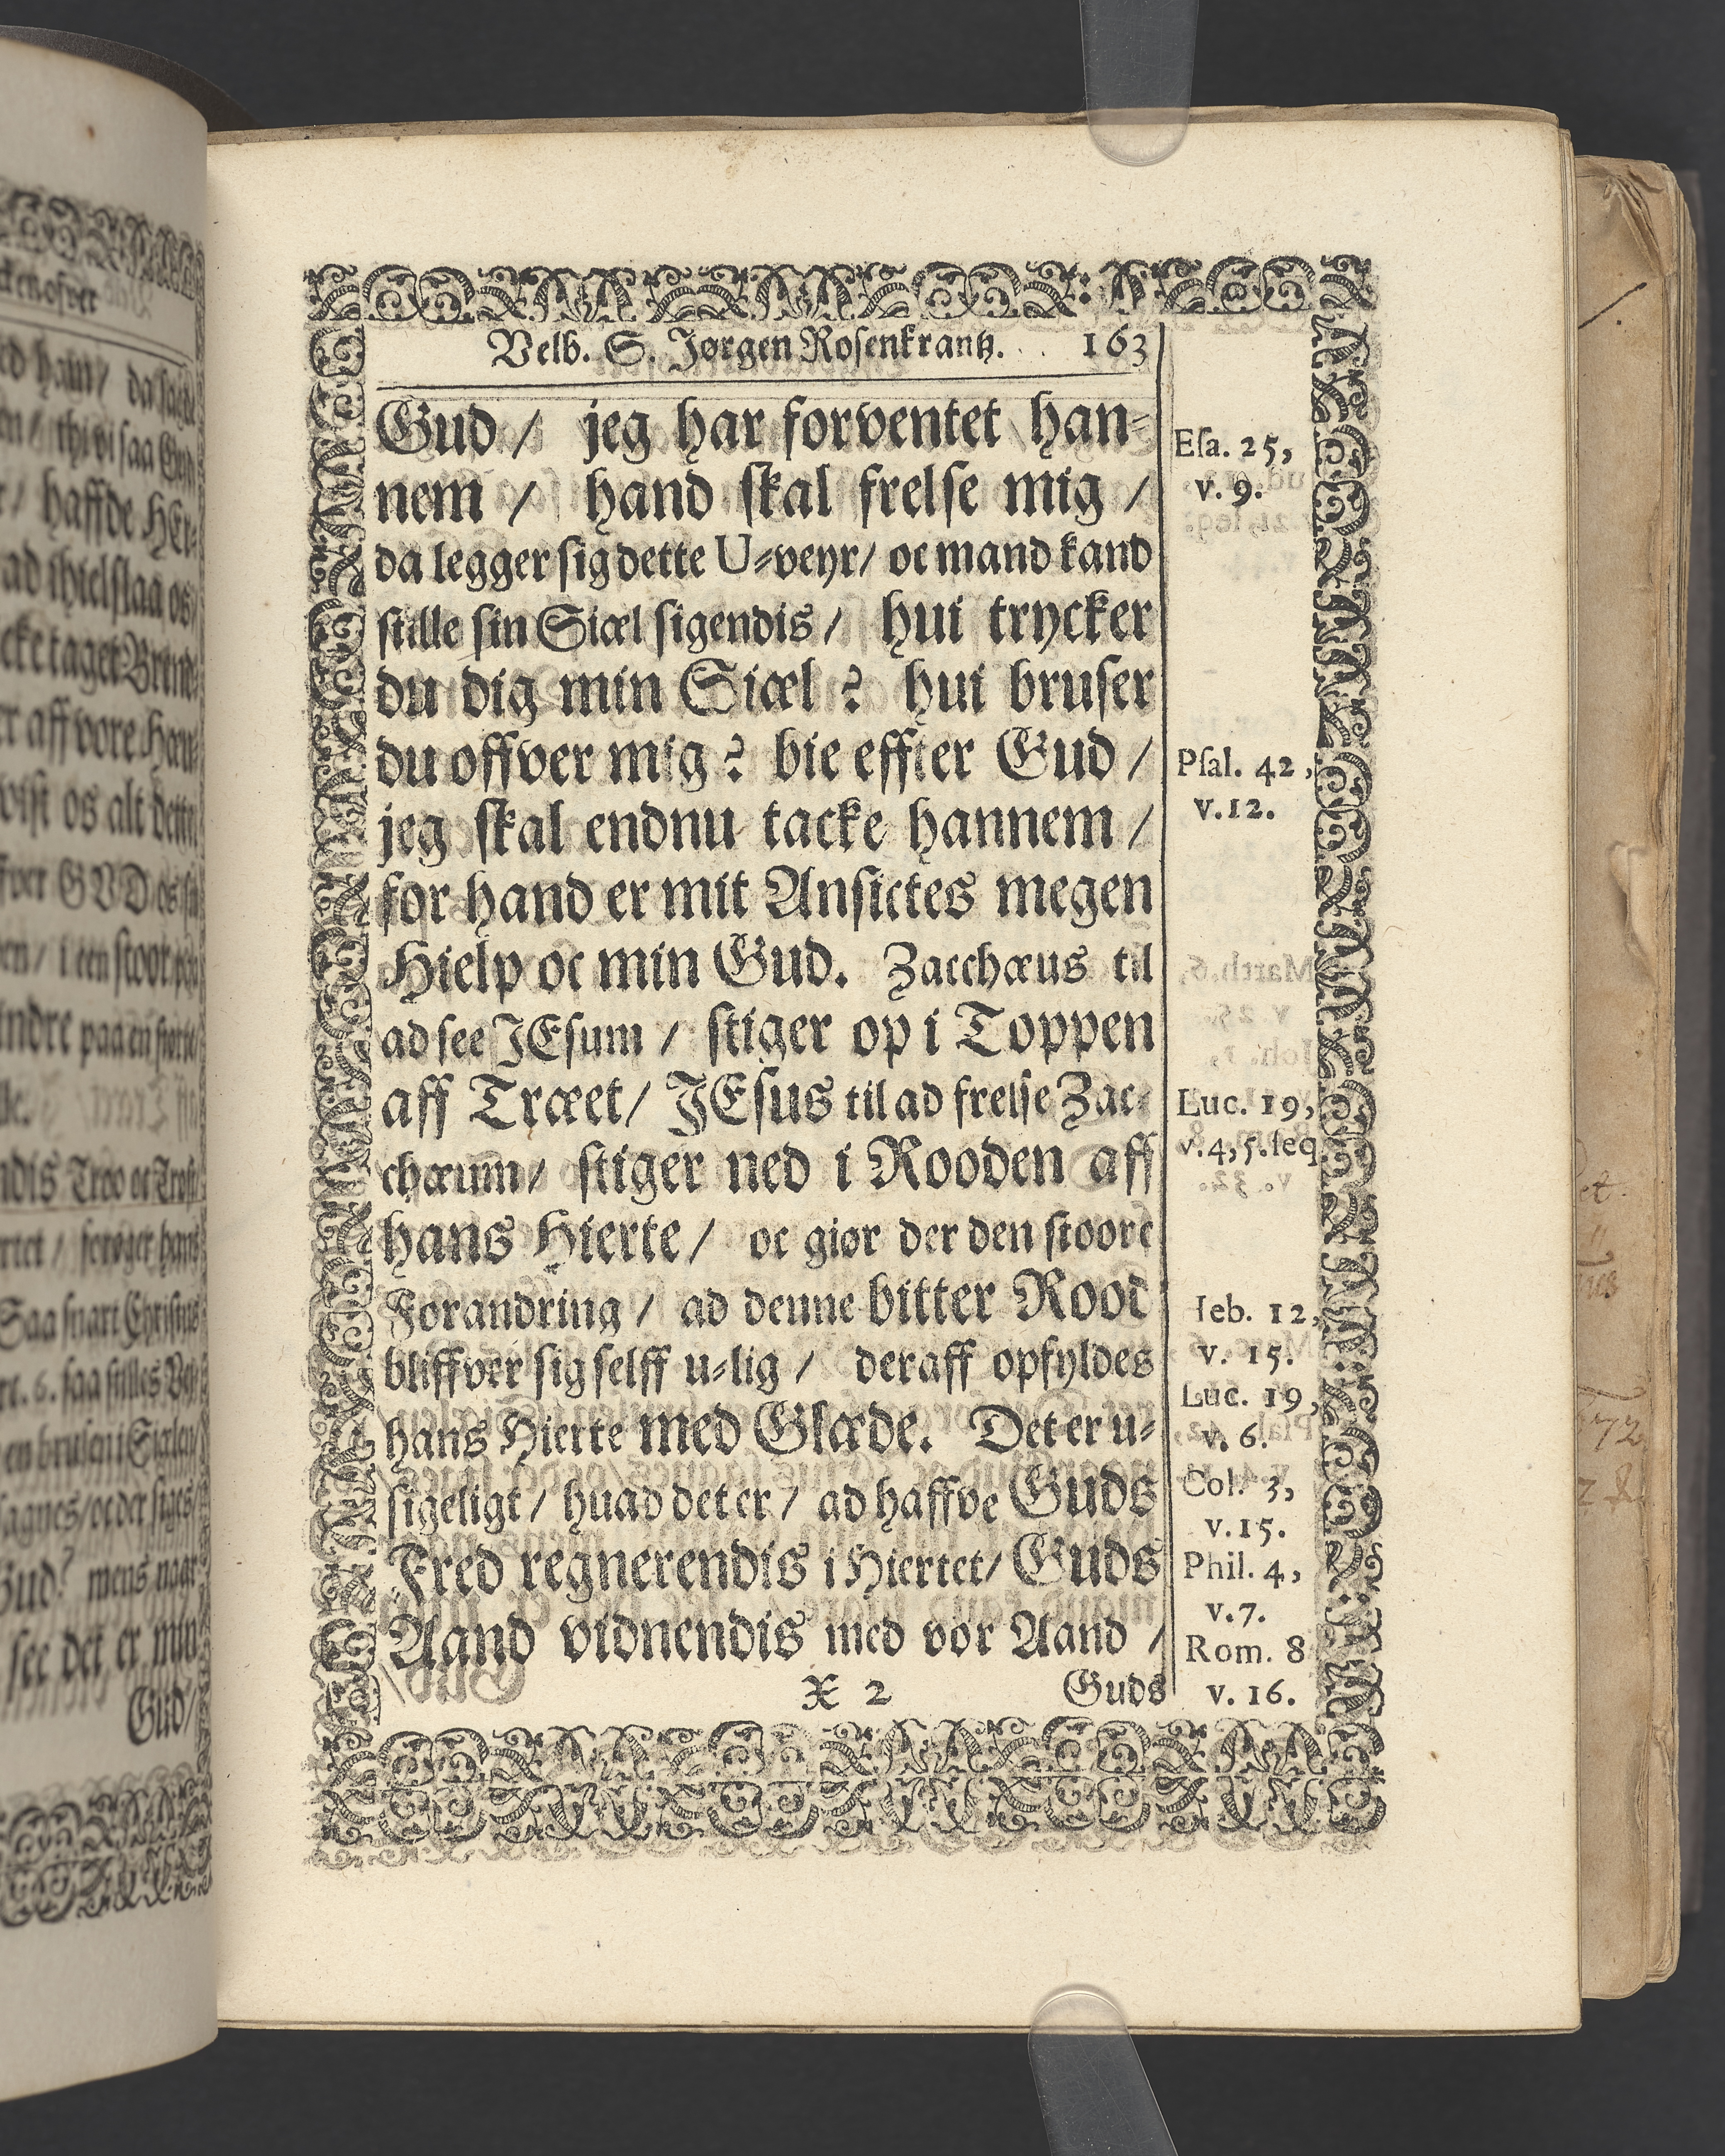 Velb. S. Jørgen Rosenkrantz. 163
Gud / jeg har forventet han-
nem / hand skal frelse mig /
da legger sig dette U-veyr / oc mand kand
stille sin Siæl sigendis / hui trycker
du dig min Siæl ? hui bruser
du offver mig ? bie effter Gud /
jeg skal endnu tacke hannem /
for hand er mit Ansictes megen
Hielp oc min Gud. Zacchæus til
ad see JEsum / stiger op i Toppen
aff Træet / JEsus til ad frelse Zac-
chæum / stiger ned i Rooden aff
hans Hierte / oc giør der den stoore
Forandring / ad denne bitter Rood
bliffver sig selff u-lig / deraff opfyldes
hans Hierte med Glæde. Det er u-
sigeligt / huad det er / ad haffve Guds
Fred regnerendis i Hiertet / Guds
Aand vidnendis med vor Aand /
X 2 Guds
Esa. 25,
v. 9.
Psal. 42,
v. 12.
Luc. 19,
v. 4, 5. seq.
Heb. 12,
v. 15.
Luc. 19,
v. 6.
Col. 3,
v. 15.
Phil. 4,
v. 7.
Rom. 8
v. 16.